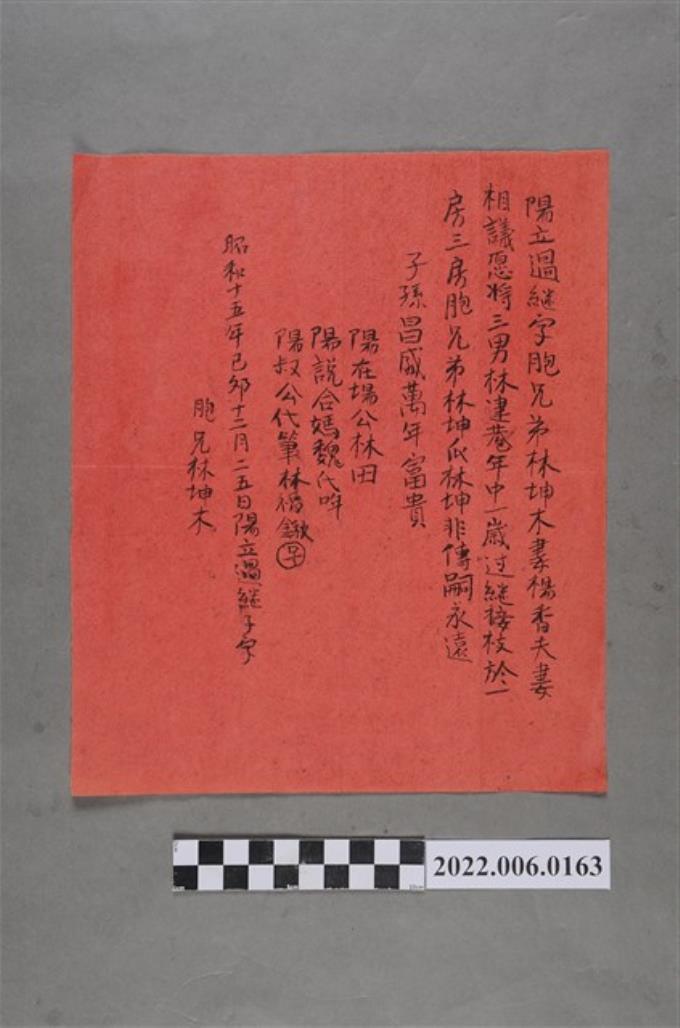 陽立過継字胞兄弟林坤木妻楊香夫妻
相議愿將三男林建巷年中一歲过継接枝於一
房三房胞兄弟林坤瓜林坤非傳嗣永遠
子孫昌盛萬年富貴
陽在場公林田
陽說合媽魏代哖
陽叔公代筆林褔
昭和十五年己夘十二月二五日陽立過継子字
胞兄林坤木
2022.006.0163